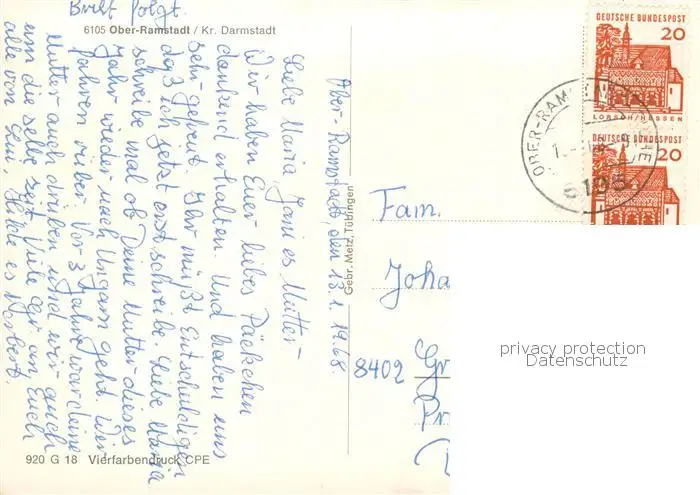 Brief folgt.
6105 Ober-Ramstadt / Kr. Darmstadt
Ober-Ramstadt den 13.1.1968.
Liebe Maria, Jani es Mutter-
Wir haben Euer liebes Päckchen
dankend erhalten. Und haben uns
sehr gefreut. Ihr müßt Entschuldigen
daß ich jetzt erst schreibe. Liebe Maria
schreibe mal ob Deine Mutter dieses
Jahr wieder nach Ungarn geht. Wir
fahren rüber. Vor 3 Jahre war deine
Mutter auch drüben und wir auch
um die selbe Zeit. Viele Gr. an Euch
alle von Lui, es Norbert.
Gebr. Metz, Tübingen
920 G 18 Vierfarbendruck CPE
DEUTSCHE BUNDESPOST
20
LORSCH/HESSEN
DEUTSCHE BUNDESPOST
20
OBER-RAM
6105
Fam.
Joha
8402 Gr
Pr
privacy protection
Datenschutz